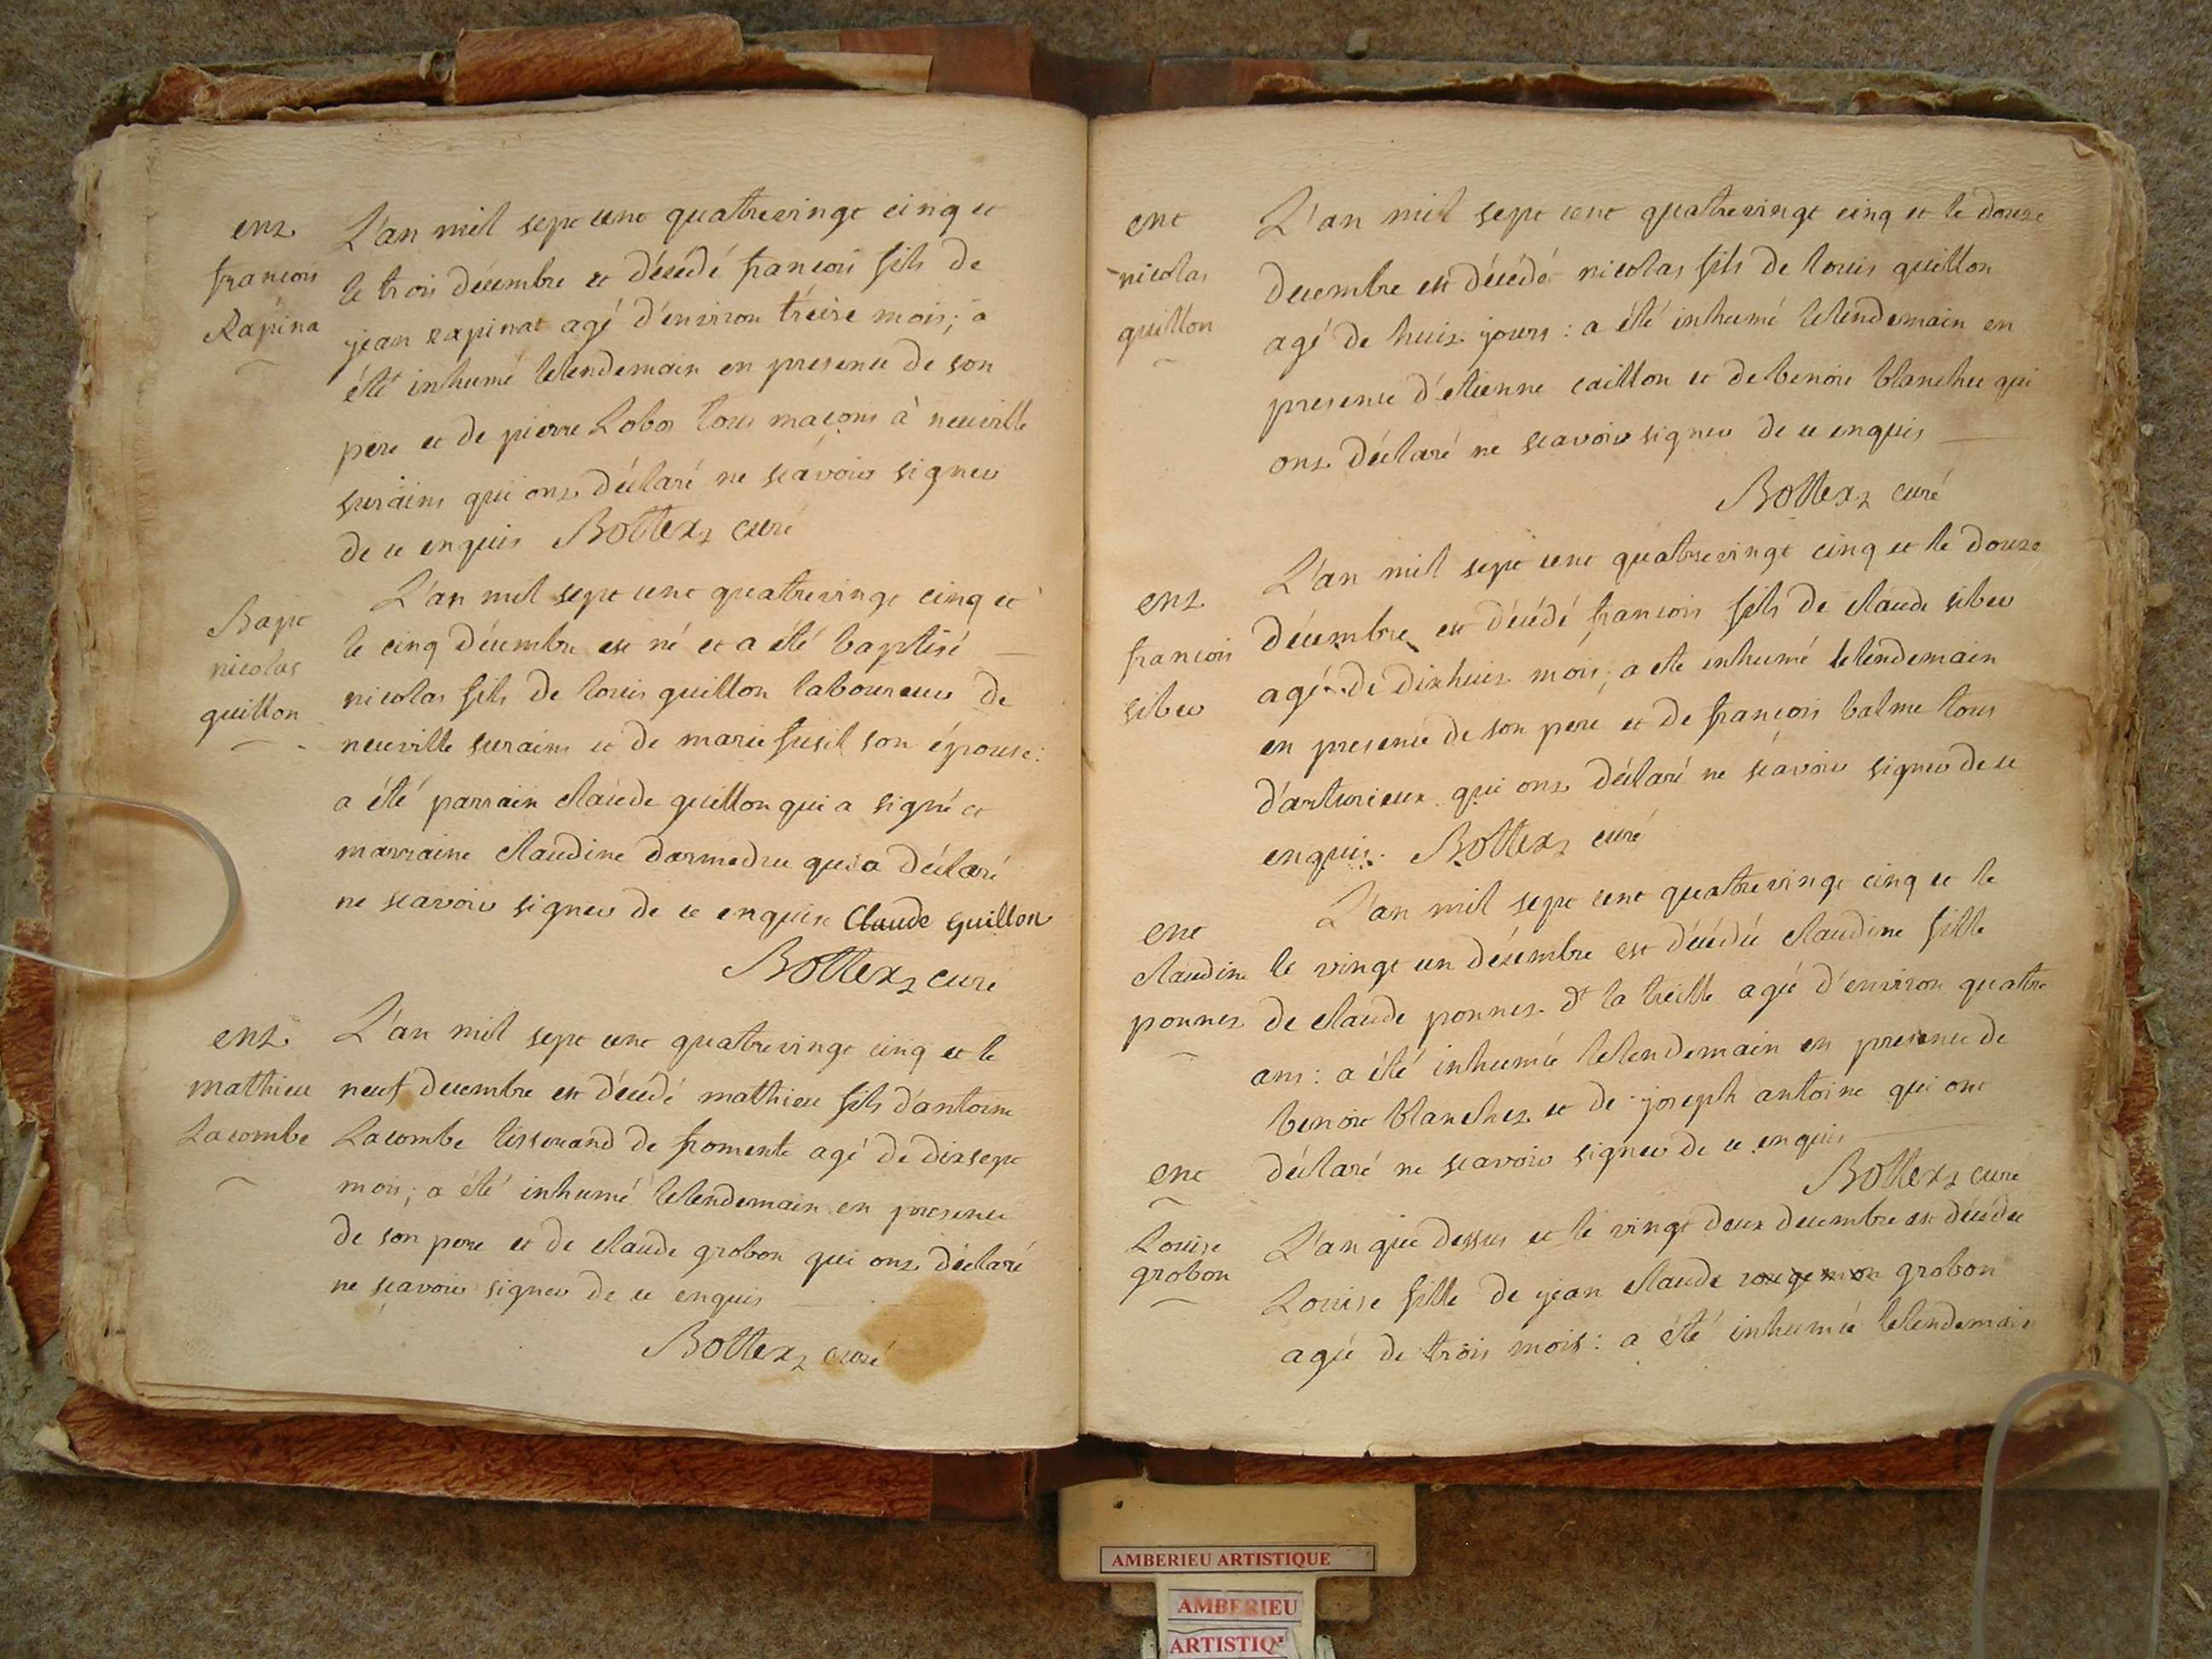 ent
françois
Rapina
L'an mil sept cent quatrevingt cinq et
le trois décembre et décédé françois fils de
jean rapinat agé d'environ treize mois; a
été inhumé le lendemain en presence de son
pere et de pierre Lobos tous maçons à neuville
surains qui ont déclaré ne scavoir signer
de ce enquis Bottex, curé
Bapt
nicolas
guillon
L'an mil sept cent quatrevingt cinq et
le cinq décembre est né et a été baptisé
nicolas fils de louis guillon laboureur de
neuville surains et de marie fusil son épouse:
a été parrain claude guillon qui a signé et
marraine claudine darmedru qui a déclaré
ne scavoir signer de ce enquise Claude guillon
Bottex, curé
ent
mathieu
Lacombe
L'an mil sept cent quatrevingt cinq et le
neuf decembre est décédé mathieu fils d'antoine
Lacombe tisserand de fromente agé de dixsept
mois; a été inhumé le lendemain en presence
de son pere et de claude grobon qui ont déclaré
ne scavoir signer de ce enquis
Bottex, curé
ent
nicolas
guillon
L'an mil sept cent quatrevingt cinq et le douze
decembre est décédé nicolas fils de louis guillon
agé de huit jours: a été inhumé le lendemain en
presence d'étienne caillon et de benoit blanchet qui
ont déclaré ne scavoir signer de ce enquis
Bottex, curé
ent
françois
siber
L'an mil sept cent quatrevingt cinq et le douze
décembre est décédé françois fils de claude siber
agé de dixhuit mois; a ete inhumé le lendemain
en presence de son pere et de françois balme tous
qui ont déclaré ne scavoir signer de ce
enquis. Bottex, curé
ent
claudine
ponnet
L'an mil sept cent quatrevingt cinq et le
le vingt un décembre est décédée claudine fille
de claude ponnet dt la treille agée d'environ quatre
ans: a été inhumée le lendemain en presence de
benoit blanchet et de joseph antoine qui ont
déclaré ne scavoir signer de ce enquis
Bottex, curé
ent
Louise
grobon
L'an que dessus et le vingt deux decembre est décédée
Louise fille de jean claude rougemon grobon
agée de trois mois: a été inhumée le lendemain
AMBERIEU ARTISTIQUE
AMBERIEU
ARTISTIQ